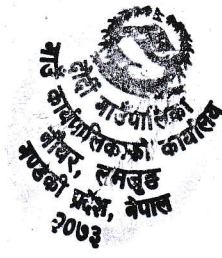 दोर्दी गाउँपालिका
गाउँ कार्यपालिकाको कार्यालय
चौथर, लमजुङ
गण्डकी प्रदेश, नेपाल
२०७३